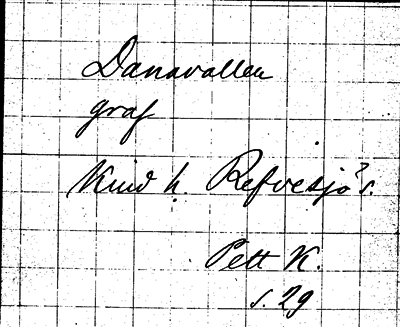 Danavallen
graf
Kind h. Refvesjö s.
Pett K.
s. 29